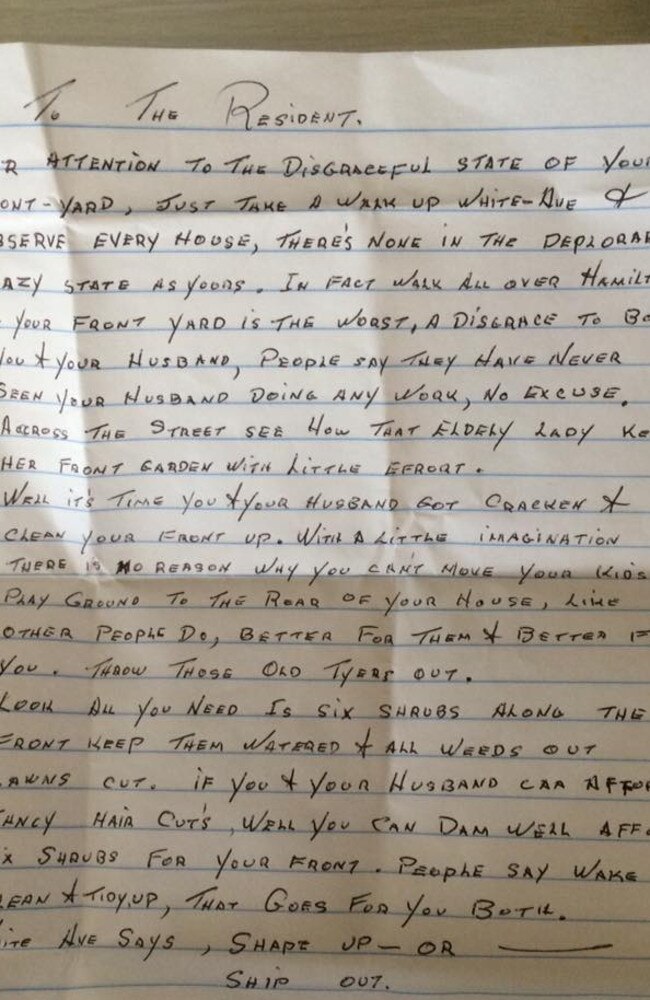 To The Resident.
R Attention To The Disgraceful state of your
ont-Yard, Just Take a walk up White-Ave &
bserve every house, there's none in the deplorab
azy state as yours. In fact walk all over Hamilt
your front yard is the worst, a disgrace to bo
you & your husband, people say they have never
seen your husband doing any work, no excuse.
Accross the street see how that eldely lady ke
her front garden with little effrort.
Well it's time you & your husband got cracken &
clean your front up. With a little imagination
there is no reason why you can't move your kids
play ground to the roar of your house, like
other people do, better for them & better f
you. Throw those old tyers out.
Look all you need is six shrubs along the
front keep them watered & all weeds out
lawns cut. If you & your husband caa affor
fancy hair cut's, well you can dam well affo
ix shrubs for your front. People say wake
lean & tidy,up, that goes for you both.
ite Ave says, shape up — or ———
ship out.